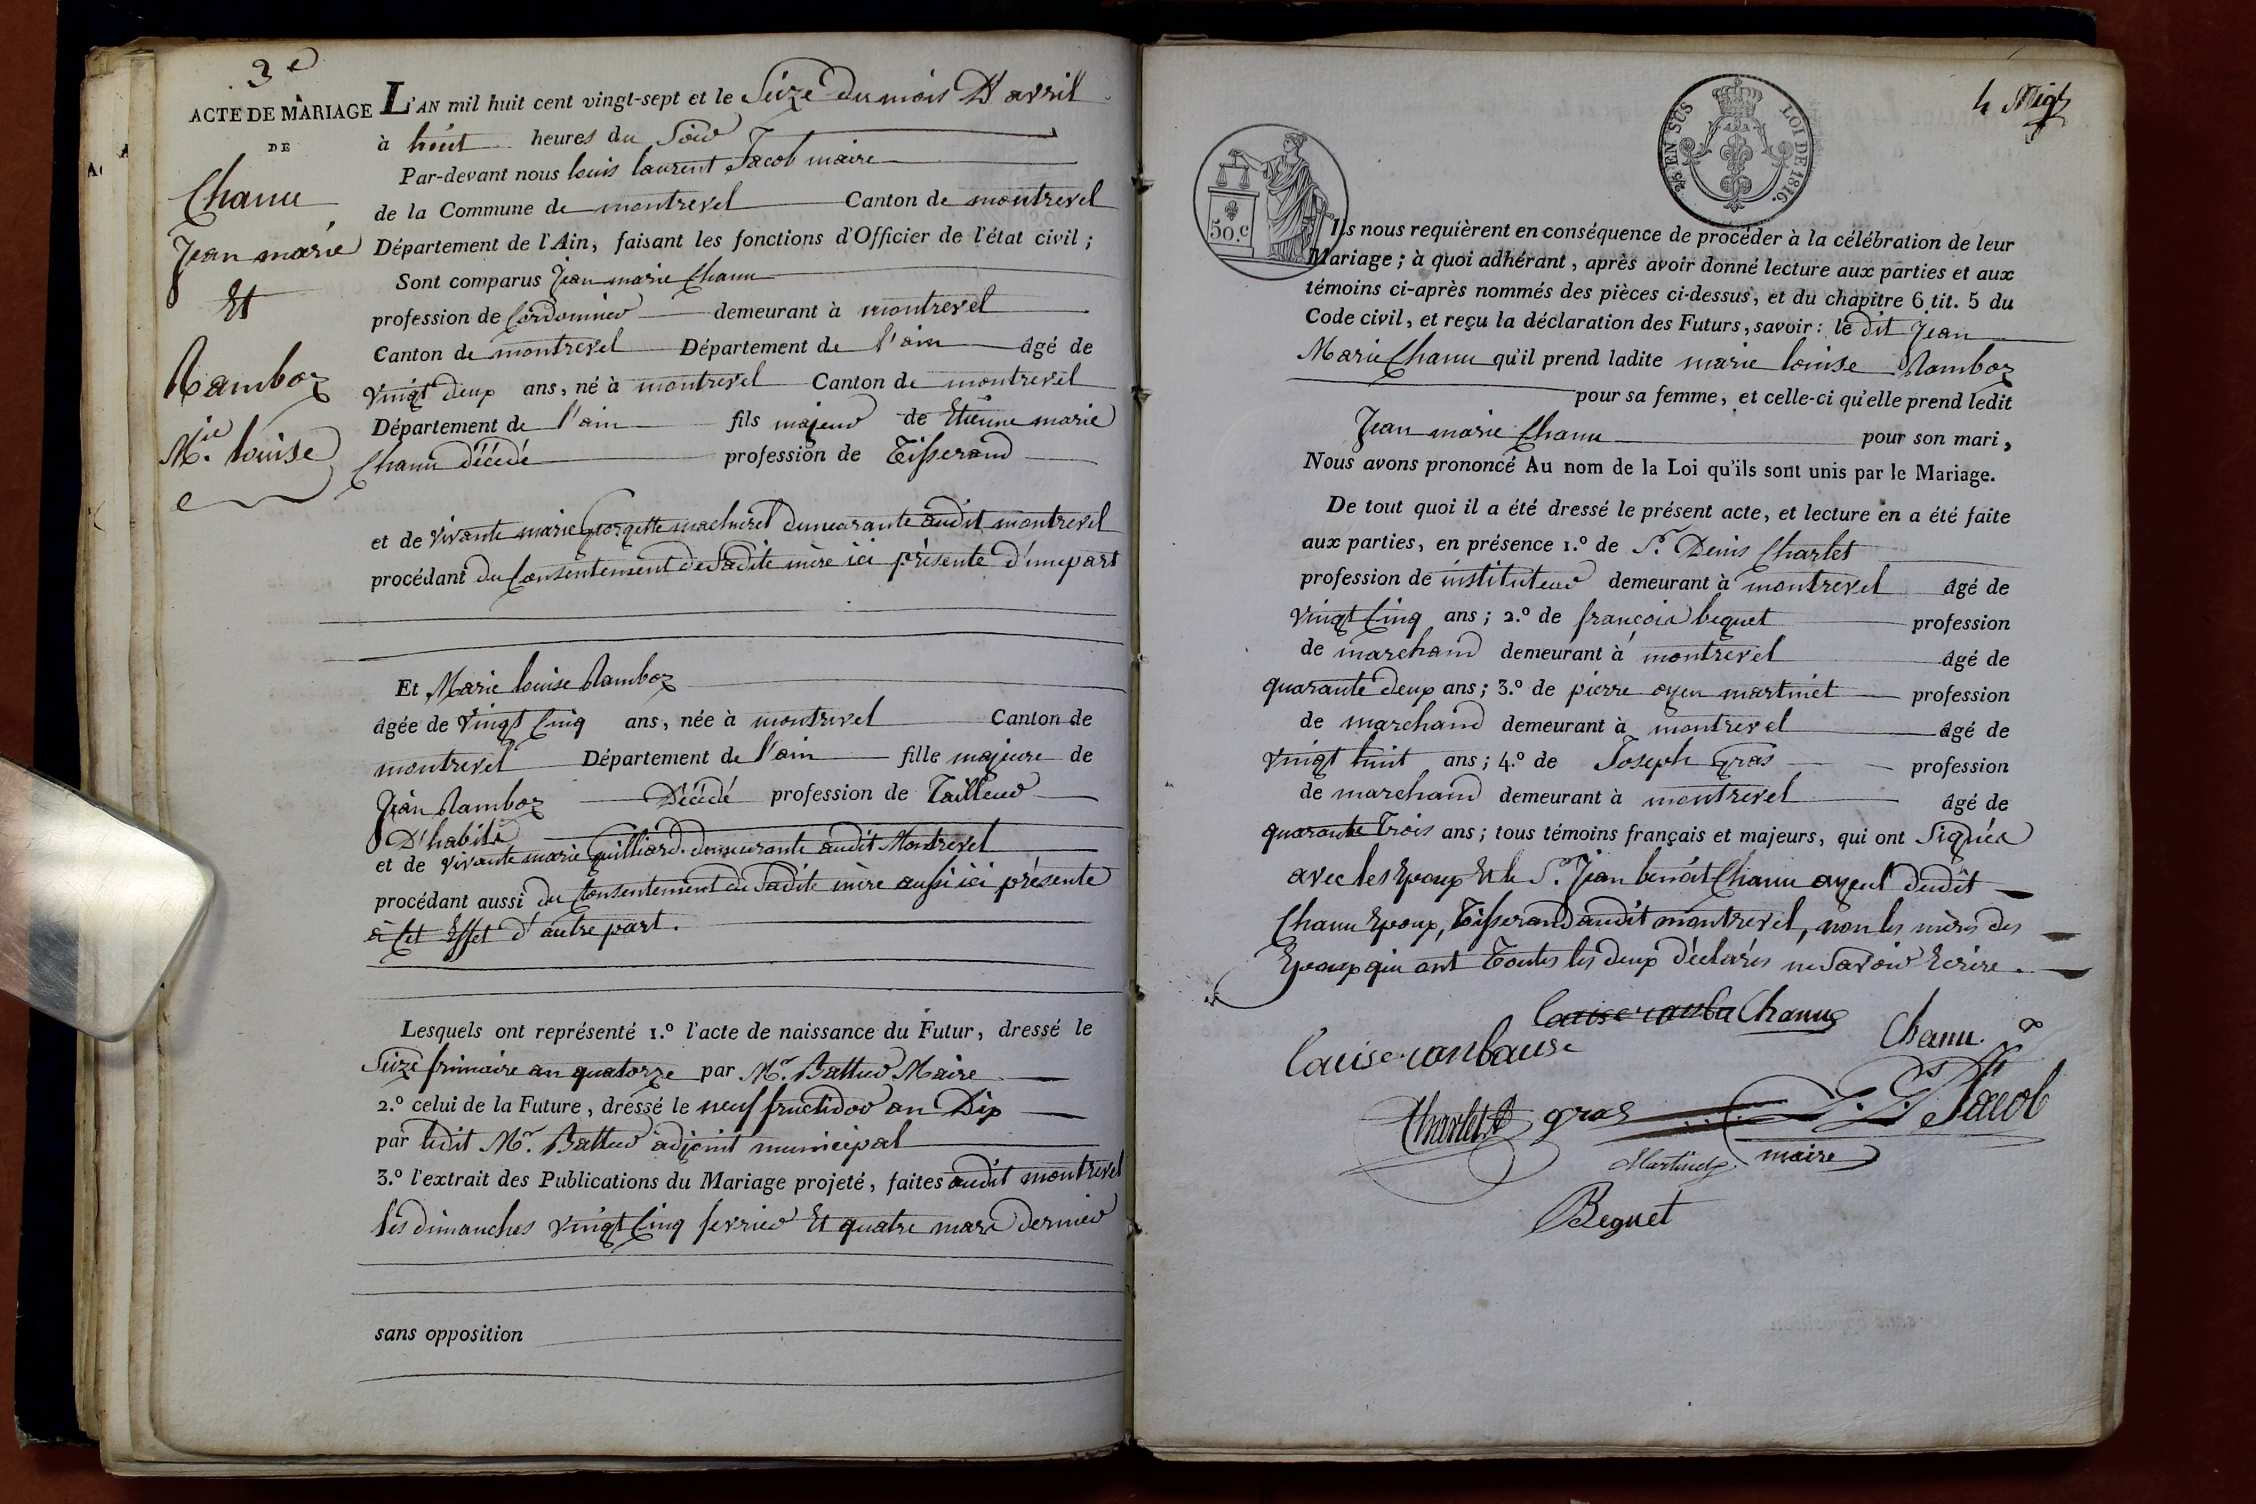 3e
ACTE DE MARIAGE
DE
Chanu
Jean marie
Et
Ramboz
Mie. louise
L'AN mil huit cent vingt-sept et le Seize du mois D'avril
à huit heures du Soir
Par-devant nous louis laurent Jacob maire
de la Commune de montrevel Canton de montrevel
Département de l'Ain, faisant les fonctions d'Officier de l'état civil;
Sont comparus Jean marie Chanu
profession de Cordonnier demeurant à montrevel
Canton de montrevel Département de l'ain âgé de
vingt deux ans, né à montrevel Canton de montrevel
Département de l'ain fils majeur de Etienne marie
Chanu décédé profession de Tisserand
et de vivante marie Georgette machurel demeurante audit montrevel
procédant du Consentement de Sadite mère ici présente d'une part
Et Marie louise Ramboz
âgée de vingt Cinq ans, née à montrevel Canton de
montrevel Département de l'ain fille majeure de
Jean Ramboz Décédé profession de Tailleur
D'habits
et de vivante marie Guilliard demeurante audit Montrevel
procédant aussi du Consentement de Sadite mère aussi ici présente
à Cet Effet d'autre part.
Lesquels ont représenté 1.º l'acte de naissance du Futur, dressé le
Seize frimaire an quatorze par Mr. Battur Maire
2.º celui de la Future, dressé le neuf fructidor an Dix
par ledit Mr. Battur adjoint municipal
3.º l'extrait des Publications du Mariage projeté, faites audit montrevel
les dimanches vingt Cinq fevrier Et quatre mars dernier
sans opposition
4
2/5 EN SUS
LOI DE 1816.
50.c
Ils nous requièrent en conséquence de procéder à la célébration de leur
Mariage; à quoi adhérant, après avoir donné lecture aux parties et aux
témoins ci-après nommés des pièces ci-dessus, et du chapitre 6 tit. 5 du
Code civil, et reçu la déclaration des Futurs, savoir: le dit Jean
Marie Chanu qu'il prend ladite marie louise Ramboz
pour sa femme, et celle-ci qu'elle prend ledit
Jean marie Chanu pour son mari,
Nous avons prononcé Au nom de la Loi qu'ils sont unis par le Mariage.
De tout quoi il a été dressé le présent acte, et lecture en a été faite
aux parties, en présence 1.º de Sr. Denis Charlet
profession de instituteur demeurant à montrevel âgé de
vingt Cinq ans; 2.º de françois beguet profession
de marchand demeurant à montrevel âgé de
quarante deux ans; 3.º de pierre oyen martinet profession
de marchand demeurant à montrevel âgé de
vingt huit ans; 4.º de Joseph Gras profession
de marchand demeurant à montrevel âgé de
quarante Trois ans; tous témoins français et majeurs, qui ont Signés
avec les Epoux Et le Sr. Jean benoît Chanu ayeul dudit
Chanu Epoux, Tisserand audit montrevel, non les mères des
Epoux qui ont Toutes les deux déclarés ne Savoir Ecrire.
Chanu
Chanu
Charlet gras L. Lt Jacob
Martinet maire
Beguet